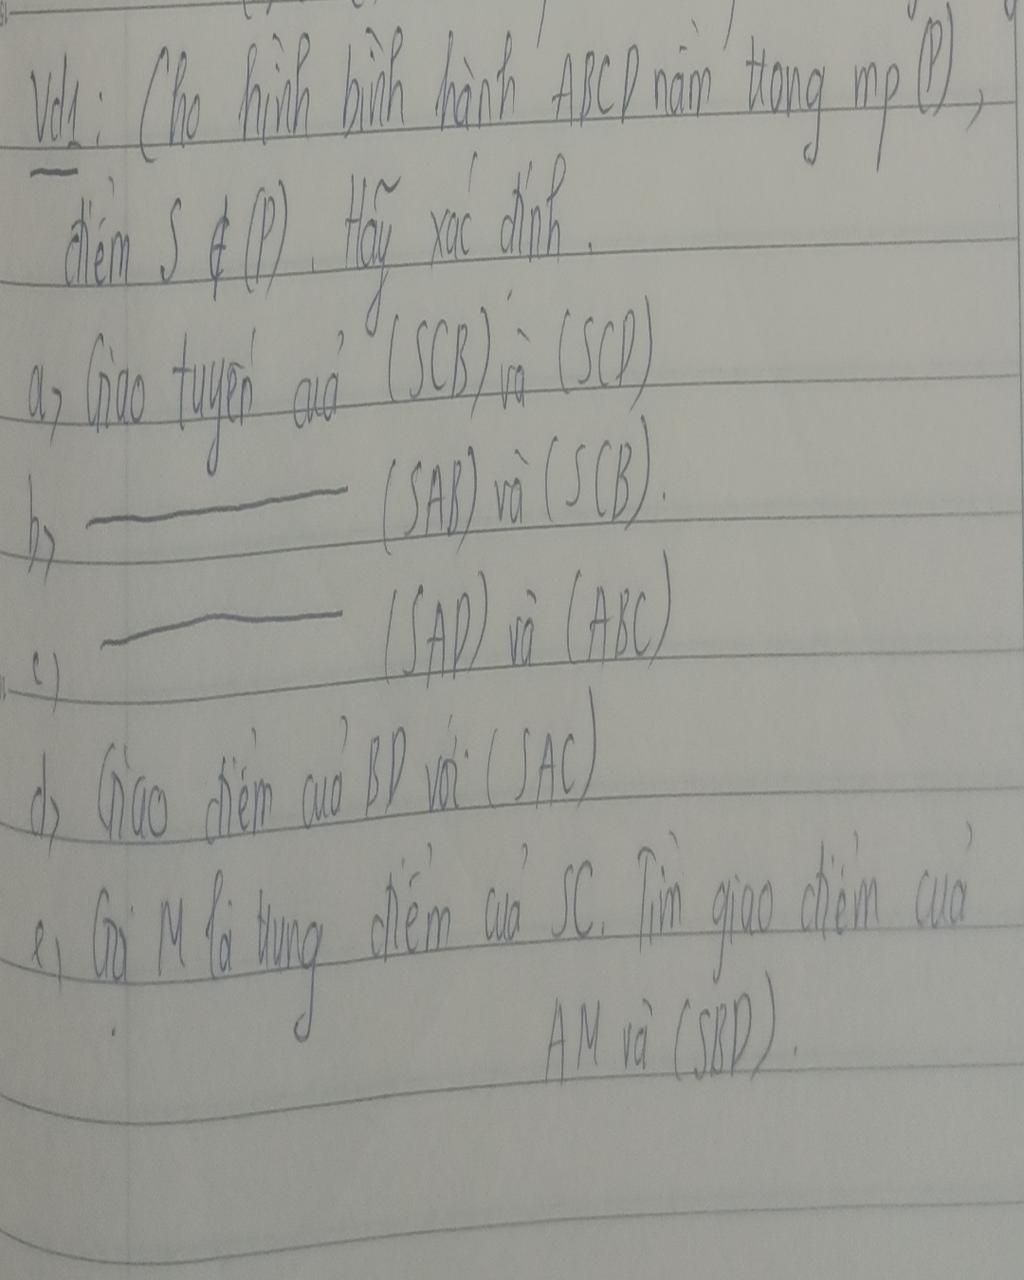 Vd1: Cho hình bình hành ABCD nằm trong mp (P),
điểm S ∉ (P). Hãy xác định.
a, Giao tuyến của (SCB) và (SCD)
b, ——— (SAB) và (SCB).
c) ——— (SAD) và (ABC)
d, Giao điểm của BD với (SAC)
e, Gọi M là trung điểm của SC. Tìm giao điểm của
AM và (SBD).